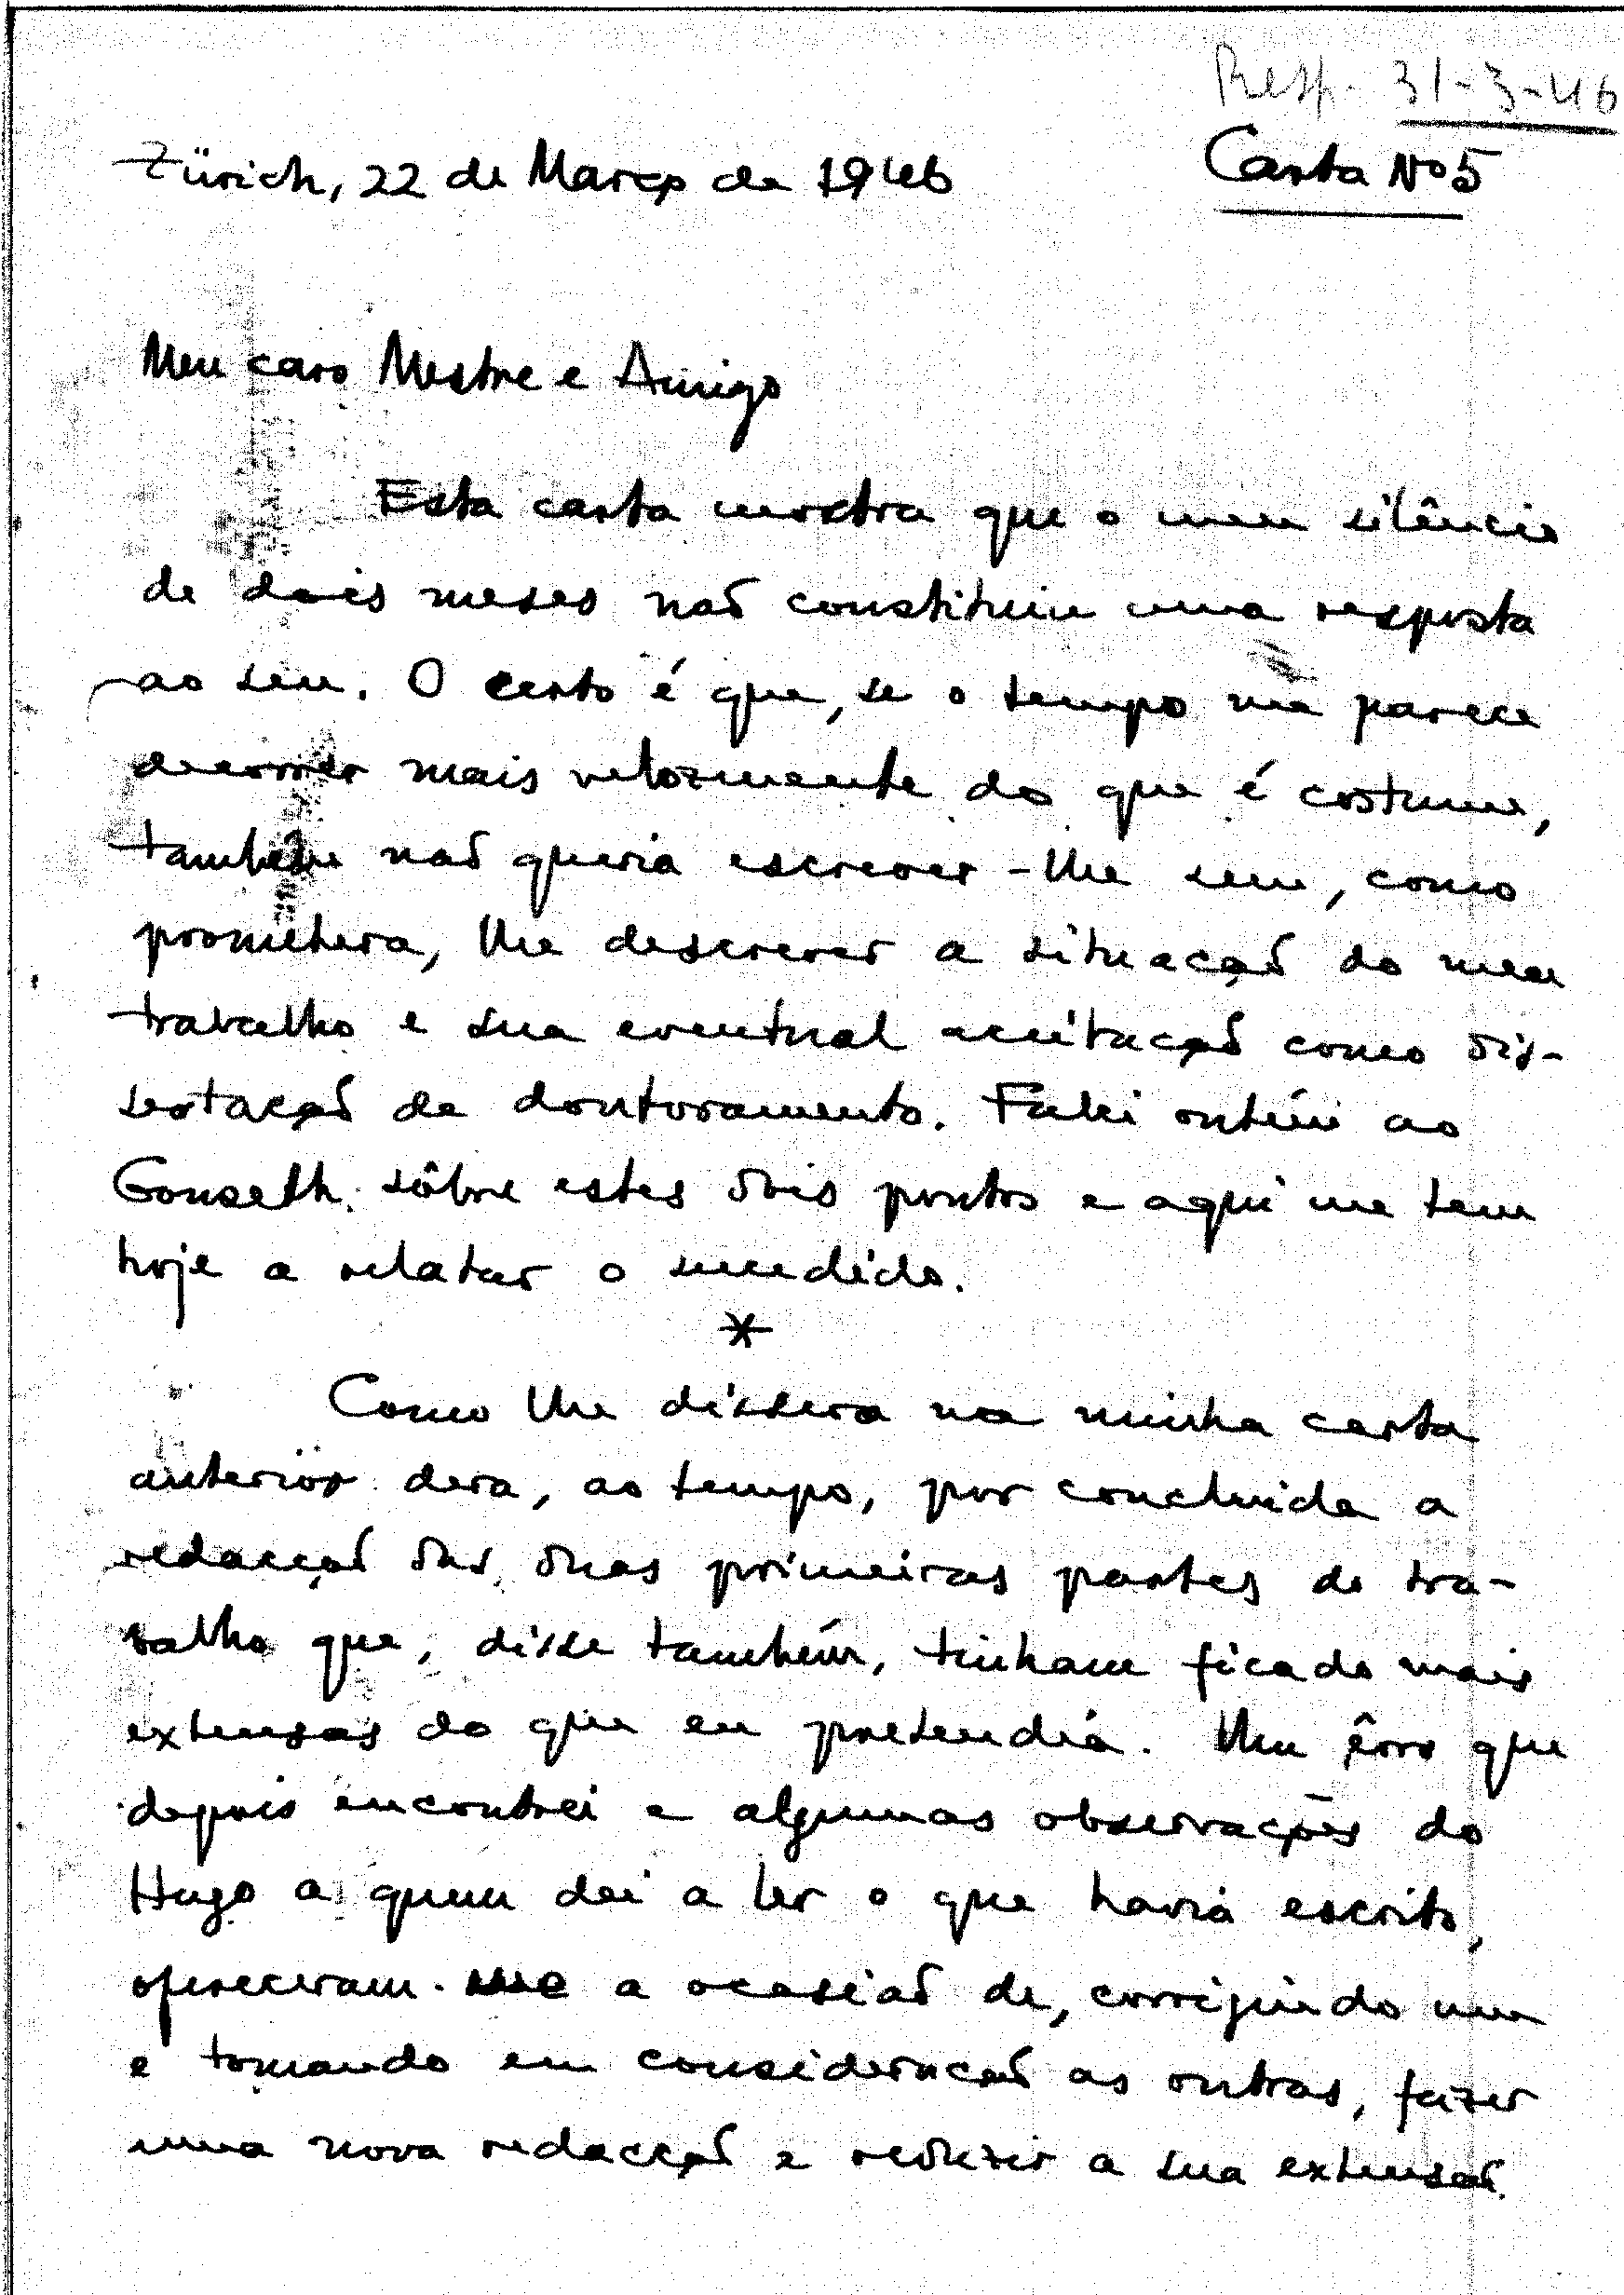 Resp. 31-3-46
Zürich, 22 de Março de 1946
Carta Nº 5
Meu caro Mestre e Amigo
Esta carta mostra que o meu silêncio
de dois meses não constituiu uma resposta
ao seu. O certo é que, se o tempo me parece
decorrer mais velozmente do que é costume,
também não queria escrever-lhe sem, como
prometera, lhe descrever a situação do meu
trabalho e sua eventual aceitação como dis-
sertação de doutoramento. Falei ontém ao
Gonseth sôbre estes dois pontos e aqui me tem
hoje a relatar o sucedido.
*
Como lhe dissera na minha carta
anterior dera, ao tempo, por concluida a
redacção das duas primeiras partes do tra-
balho que, disse também, tinham ficado mais
extensas do que eu pretendia. Um êrro que
depois encontrei e algumas observações do
Hugo a quem dei a ler o que havia escrito,
ofereceram-me a ocasião de, corrigindo um
e tomando em consideração as outras, fazer
uma nova redacção e reduzir a sua extensão.